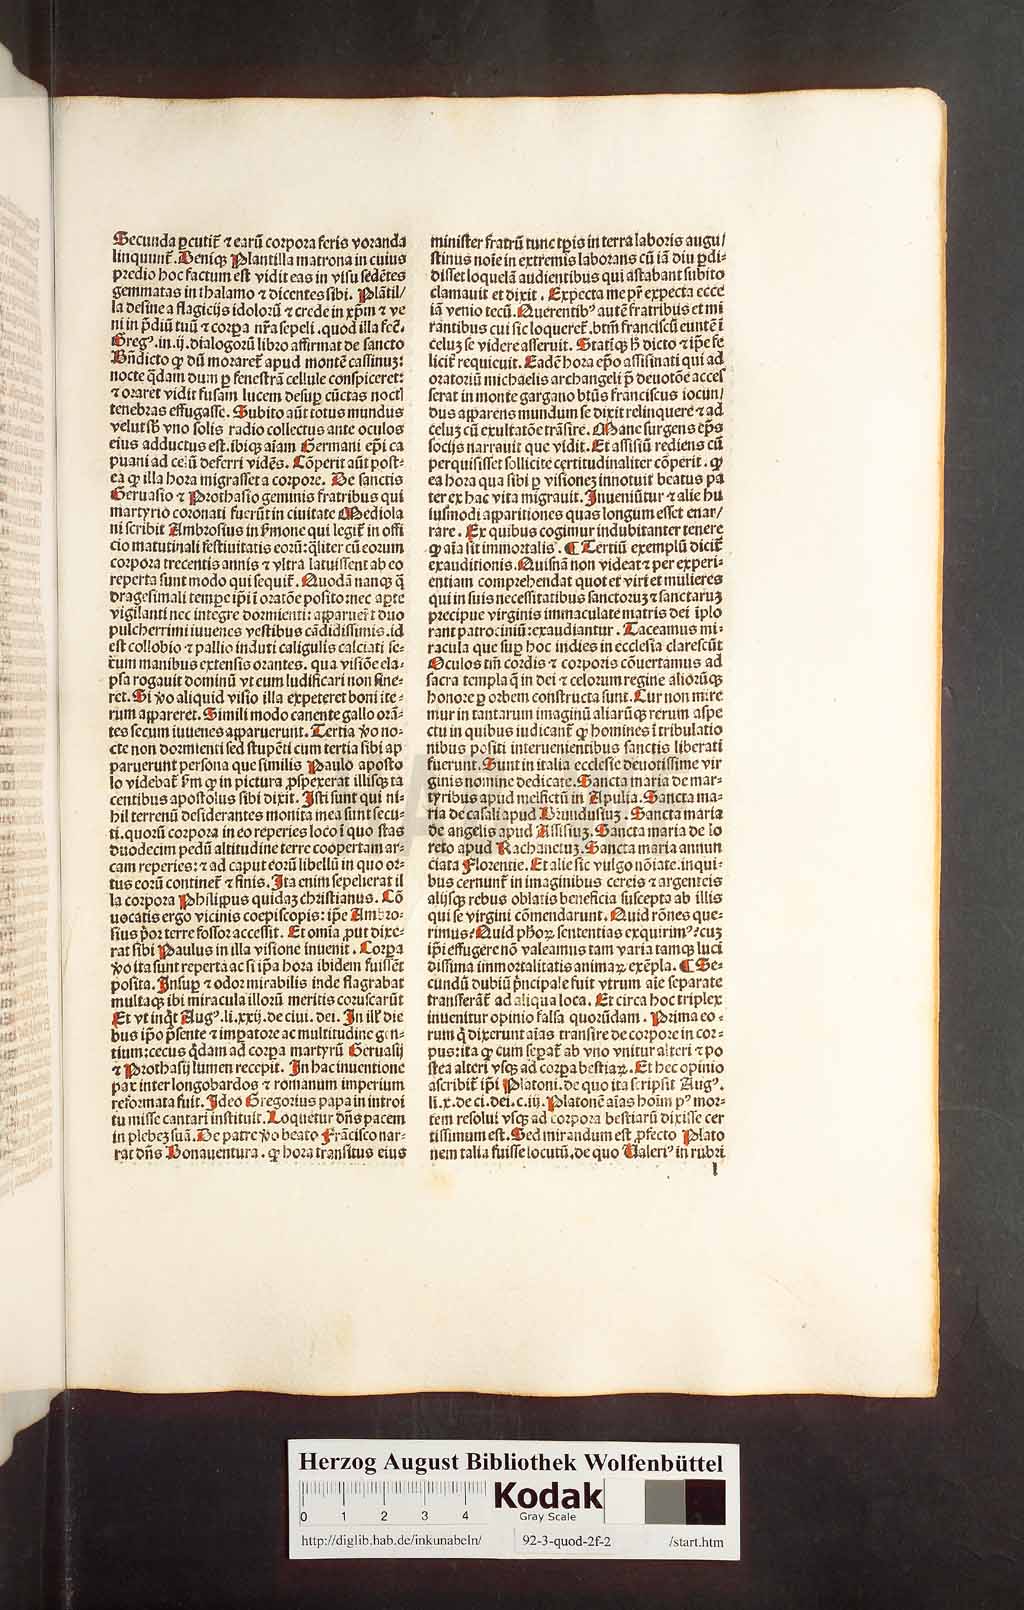 Secunda ꝑcutit̃ ⁊ earũ corpora feris voranda
linquunt̃. Deniqꝫ Plantilla matrona in cuius
predio hoc factum est vidit eas in visu sedẽtes
gemmatas in thalamo ⁊ dicentes sibi. Plãtil/
la desine a flagicijs idolorũ ⁊ crede in xp̃m ⁊ ve
ni in p̃diũ tuũ ⁊ corꝑa nr̃a sepeli. quod illa fec̃.
Greg⁹. in .ij. dialogorũ libro affirmat de sancto
Bñdicto ꝙ dũ moraret̃ apud montẽ cassinuꝫ:
nocte q̃dam dum ꝑ fenestrã cellule conspiceret:
⁊ oraret vidit fusam lucem desuꝑ cũctas noctꝭ
tenebras effugasse. Subito aũt totus mundus
velutsb̃ vno solis radio collectus ante oculos
eius adductus est. ibiqꝫ aĩam Germani ep̃i ca
puani ad celũ deferri vidẽs. Cõperit aũt post⸗
ea ꝙ illa hora migrasset a corpore. De sanctis
Geruasio ⁊ Prothasio geminis fratribus qui
martyrio coronati fuerũt in ciuitate Mediola
ni scribit Ambrosius in s̃mone qui legit̃ in offi
cio matutinali festiuitatis eorũ: q̃liter cũ eorum
corpora trecentis annis ⁊ vltra latuissent ab eo
reperta sunt modo qui sequit̃. Quodã nanqꝫ q̃
dragesimali tempe ip̃i ĩ oratõe posito: nec aꝑte
vigilanti nec integre dormienti: apparuer̃t duo
pulcherrimi iuuenes vestibus cãdidissimis. id
est collobio ⁊ pallio induti caligulis calciati se⸗
cum manibus extensis orantes. qua visiõe ela⸗
psa rogauit dominũ vt eum ludificari non sine⸗
ret. Si ṽo aliquid visio illa expeteret boni ite⸗
rum appareret. Simili modo canente gallo orã⸗
tes secum iuuenes apparuerunt. Tertia ṽo no⸗
cte non dormienti sed stupẽti cum tertia sibi ap
paruerunt persona que similis Paulo aposto
lo videbat̃ s̃m ꝙ in pictura ꝓspexerat illisqꝫ ta
centibus apostolus sibi dixit. Isti sunt qui ni⸗
hil terrenũ desiderantes monita mea sunt secu⸗
ti. quorũ corpora in eo reperies loco ĩ quo stas
duodecim pedũ altitudine terre coopertam ar⸗
cam reperies: ⁊ ad caput eorũ libellũ in quo or⸗
tus eorũ continet̃ ⁊ finis. Ita enim sepelierat il
la corpora Philippus quidaꝫ christianus. Cõ
uocatis ergo vicinis coepiscopis: ip̃e Ambro⸗
sius p̃or terre fossor accessit. Et omĩa ꝓut dixe⸗
rat sibi Paulus in illa visione inuenit. Corꝑa
ṽo ita sunt reperta ac si ip̃a hora ibidem fuissẽt
posita. Insuꝑ ⁊ odor mirabilis inde flagrabat
multaqꝫ ibi miracula illorũ meritis coruscarũt
Et vt inq̃t Aug⁹. li. xxij. de ciui. dei. In ill̃ die
bus ip̃o p̃sente ⁊ imꝑatore ac multitudine gen⸗
tium: cecus q̃dam ad corꝑa martyrũ Geruasij
⁊ Prothasij lumen recepit. In hac inuentione
pax inter longobardos ⁊ romanum imperium
reformata fuit. Ideo Gregorius papa in introi
tu misse cantari instituit. Loquetur dñs pacem
in plebeꝫ suã. De patre ṽo beato Frãcisco nar⸗
rat dñs Bonauentura. ꝙ hora transitus eius
minister fratrũ tunc tp̃is in terra laboris augu/
stinus noĩe in extremis laborans cũ iã diu ꝑdi⸗
disset loquelã audientibus qui astabant subito
clamauit et dixit. Expecta me pr̃ expecta ecce
iã venio tecũ. Querentib⁹ autẽ fratribus et mi
rantibus cui sic loqueret̃. btm̃ franciscũ euntẽ ĩ
celuꝫ se videre asseruit. Statiqꝫ h̃ dicto ⁊ ip̃e fe
licit̃ requicuit. Eadẽ hora ep̃o assisinati qui ad
oratoriũ michaelis archangeli p̃ deuotõe acces
serat in monte gargano bt̃us franciscus iocun/
dus apparens mundum se dixit relinquere ⁊ ad
celuꝫ cũ exultatõe trãsire. Mane surgens ep̃s
socijs narrauit que vidit. Et assisiũ rediens cũ
perquisisset sollicite certitudinaliter cõperit. ꝙ
ea hora qua sibi ꝑ visioneꝫ innotuit beatus pa
ter ex hac vita migrauit. Inueniũtur ⁊ alie hu
iusmodi apparitiones quas longum esset enar/
rare. Ex quibus cogimur indubitanter tenere
ꝙ aĩa sit immortalis. ¶ Tertiũ exemplũ dicit̃
exauditionis. Quisnã non videat ⁊ per experi⸗
entiam comprehendat quot et viri et mulieres
qui in suis necessitatibus sanctoruꝫ ⁊ sanctaruꝫ
precipue virginis immaculate matris dei ĩplo
rant patrociniũ: exaudiantur. Taceamus mi⸗
racula que suꝑ hoc indies in ecclesia clarescũt
Oculos tm̃ cordis ⁊ corporis cõuertamus ad
sacra templa q̃ in dei ⁊ celorum regine aliorũqꝫ
honore ꝑ orbem constructa sunt. Cur non mire
mur in tantarum imaginũ aliarũqꝫ rerum aspe
ctu in quibus iudicant̃ ꝙ homines ĩ tribulatio
nibus positi interuenientibus sanctis liberati
fuerunt. Sunt in italia ecclesie deuotissime vir
ginis nomine dedicate. Sancta maria de mar⸗
tyribus apud melfictũ in Apulia. Sancta ma⸗
ria de casali apud Brundusiuꝫ. Sancta maria
de angelis apud Assisiuꝫ. Sancta maria de lo
reto apud Rachanetuꝫ. Sancta maria annun
ciata Florentie. Et alie sic vulgo nõiate. in qui⸗
bus cernunt̃ in imaginibus cereis ⁊ argenteis
alijsqꝫ rebus oblatis beneficia suscepta ab illis
qui se virgini cõmendarunt. Quid rõnes que⸗
rimus? Quid ph̃oꝝ sententias exquirim⁹? cuꝫ
ip̃i effugere nõ valeamus tam varia tamqꝫ luci
dissima immortalitatis animaꝝ exẽpla. ¶ Se⸗
cundũ dubiũ p̃ncipale fuit vtrum aĩe separate
transferãt̃ ad aliqua loca. Et circa hoc triplex
inuenitur opinio falsa quorũdam. Prima eo⸗
rum q̃ dixerunt aĩas transire de corpore in cor⸗
pus: ita ꝙ cum seꝑat̃ ab vno vnitur alteri ⁊ po
stea alteri vsqꝫ ad corꝑa bestiaꝝ. Et hec opinio
ascribit̃ ip̃i Platoni. de quo ita scripsit Aug⁹.
li. x. de ci. dei. c. iij. Platonẽ aĩas hoĩm p⁹ mor⸗
tem resolui vsqꝫ ad corpora bestiarũ dixisse cer
tissimum est. Sed mirandum est ꝓfecto Plato
nem talia fuisse locutũ. de quo Valeri⁹ in rubri
l
Herzog August Bibliothek Wolfenbüttel
0 1 2 3 4
Kodak
Gray Scale
http://diglib.hab.de/inkunabeln/ 92-3-quod-2f-2 /start.htm